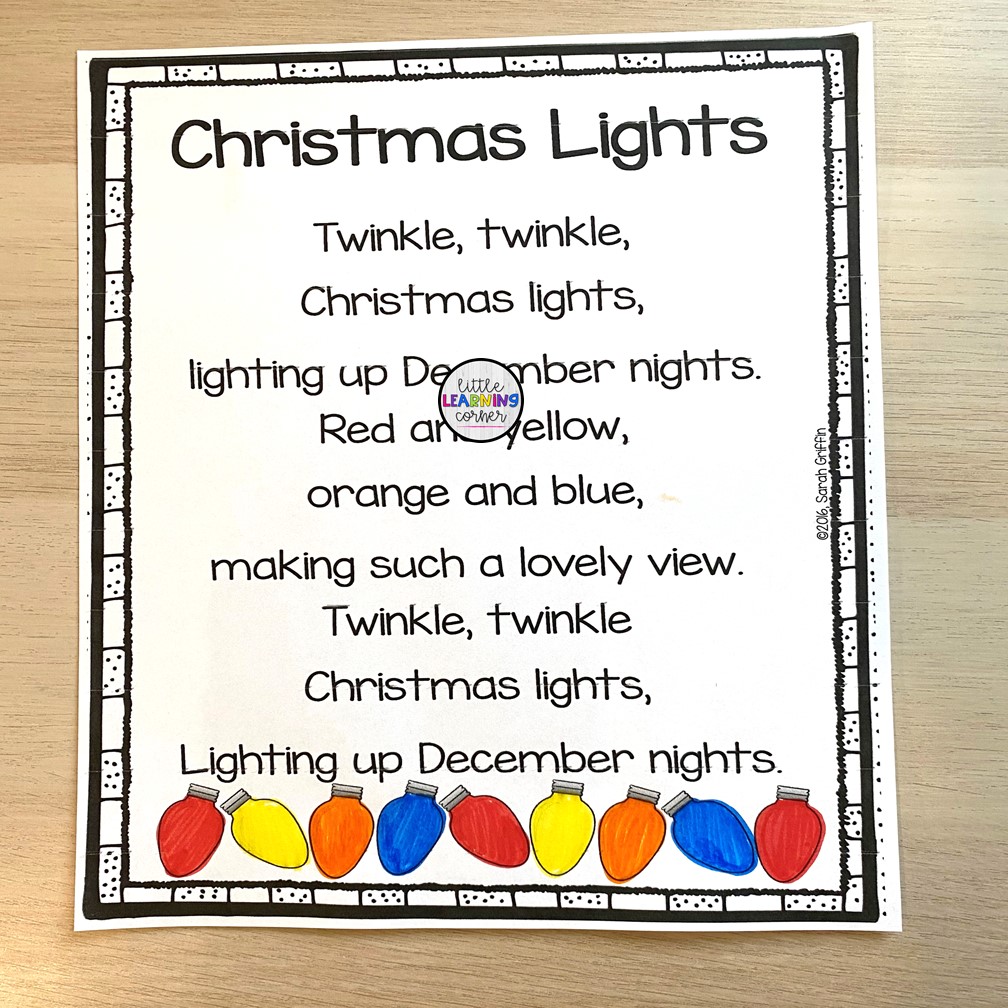 Christmas Lights
Twinkle, twinkle,
Christmas lights,
lighting up December nights.
little
LEARNING
corner
Red and yellow,
orange and blue,
making such a lovely view.
Twinkle, twinkle
Christmas lights,
Lighting up December nights.
©2016, Sarah Griffin